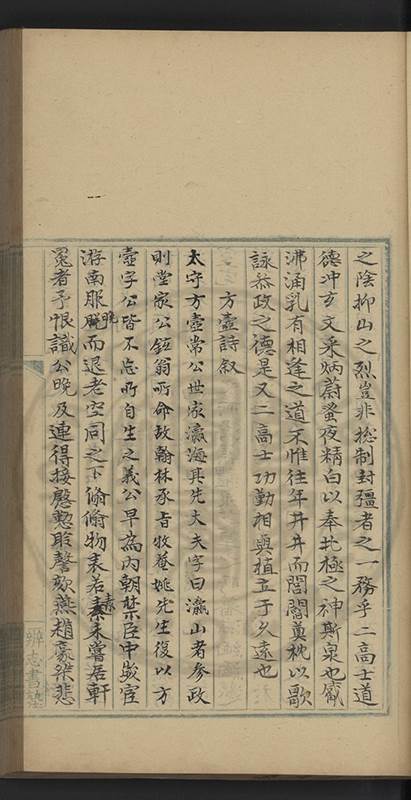 之陰抑山之烈豈非捴制封疆者之一務乎二高士道
德冲玄文采炳蔚蚤夜精白以奉北極之神斯泉也觱
沸涌乳有相逢之道不惟往年井井而閭閻奠枕以歌
詠恭政之德是又二高士功勤相與植立于久遠也
方壺詩叙
太守方壺常公世家瀛海其先大夫字曰瀛山者參政
則堂家公鉉翁所命故翰林承旨牧菴姚先生復以方
壺字公皆不忘所自生之義公早為內朝禁臣中歲宦
游南服晚而退老空同之下翛翛物表若素未嘗居軒
冕者予恨識公晚及連得接慇懃聆謦欬燕趙豪桀悲
辨志書塾